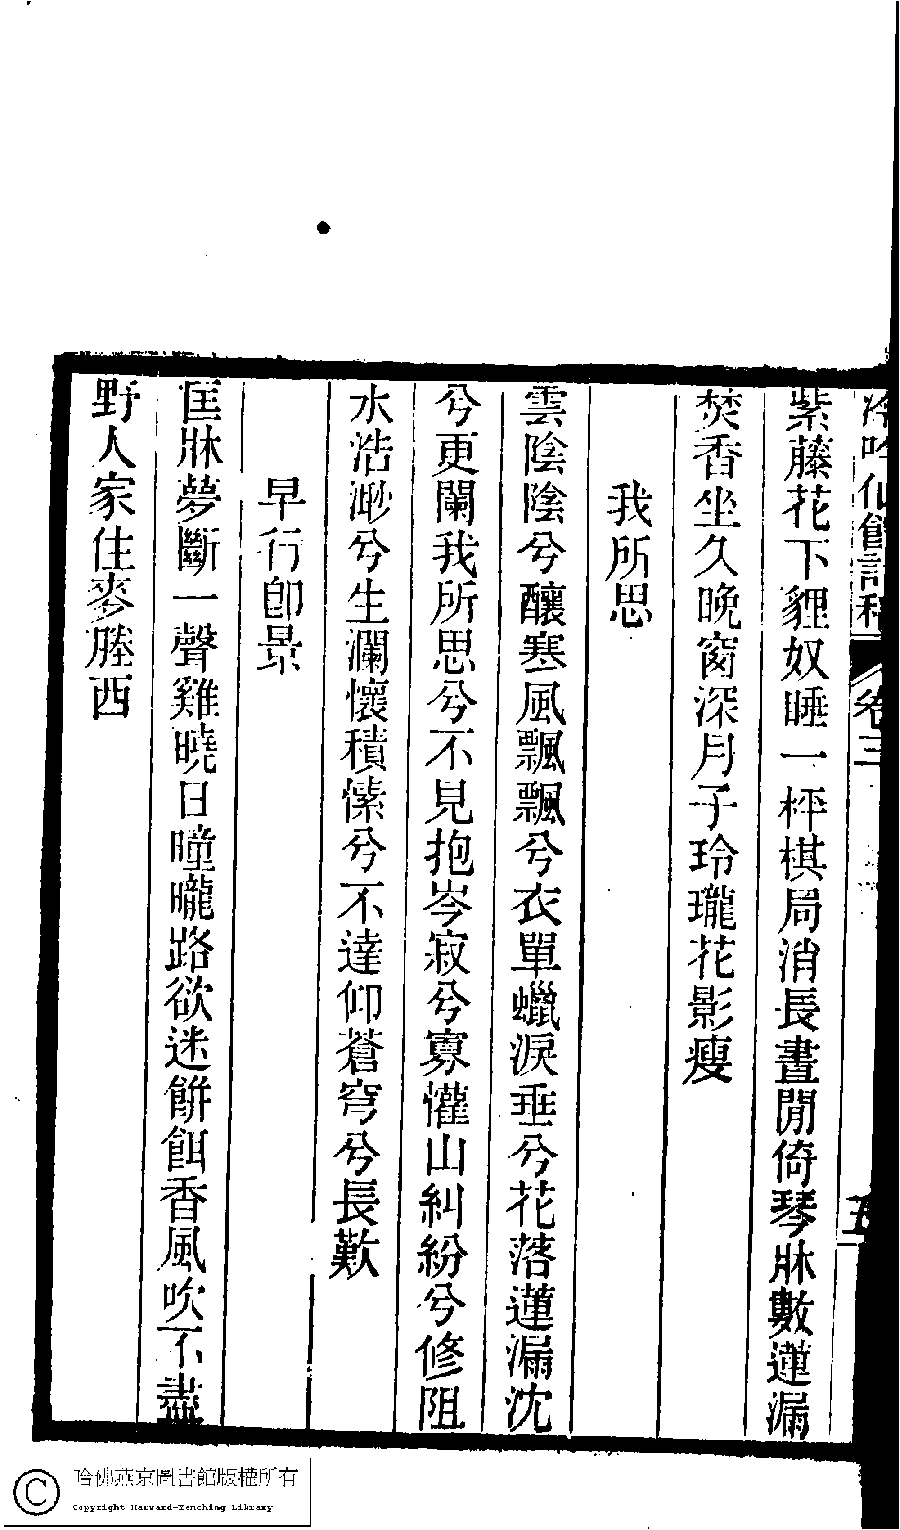 冷吟仙館詩稿 卷三 五
紫藤花下貍奴睡一枰棋局消長晝閒倚琴牀數蓮漏
焚香坐久晚窗深月子玲瓏花影瘦
我所思
雲陰陰兮釀寒風飄飄兮衣單蠟淚垂兮花落蓮漏沈
兮更闌我所思兮不見抱岑寂兮寡懽山糾紛兮修阻
水浩渺兮生瀾懷積愫兮不達仰蒼穹兮長歎
早行卽景
匡牀夢斷一聲雞曉日曈曨路欲迷餠餌香風吹不盡
野人家住麥塍西
哈佛燕京圖書館版權所有
Copyright Harvard-Yenching Library